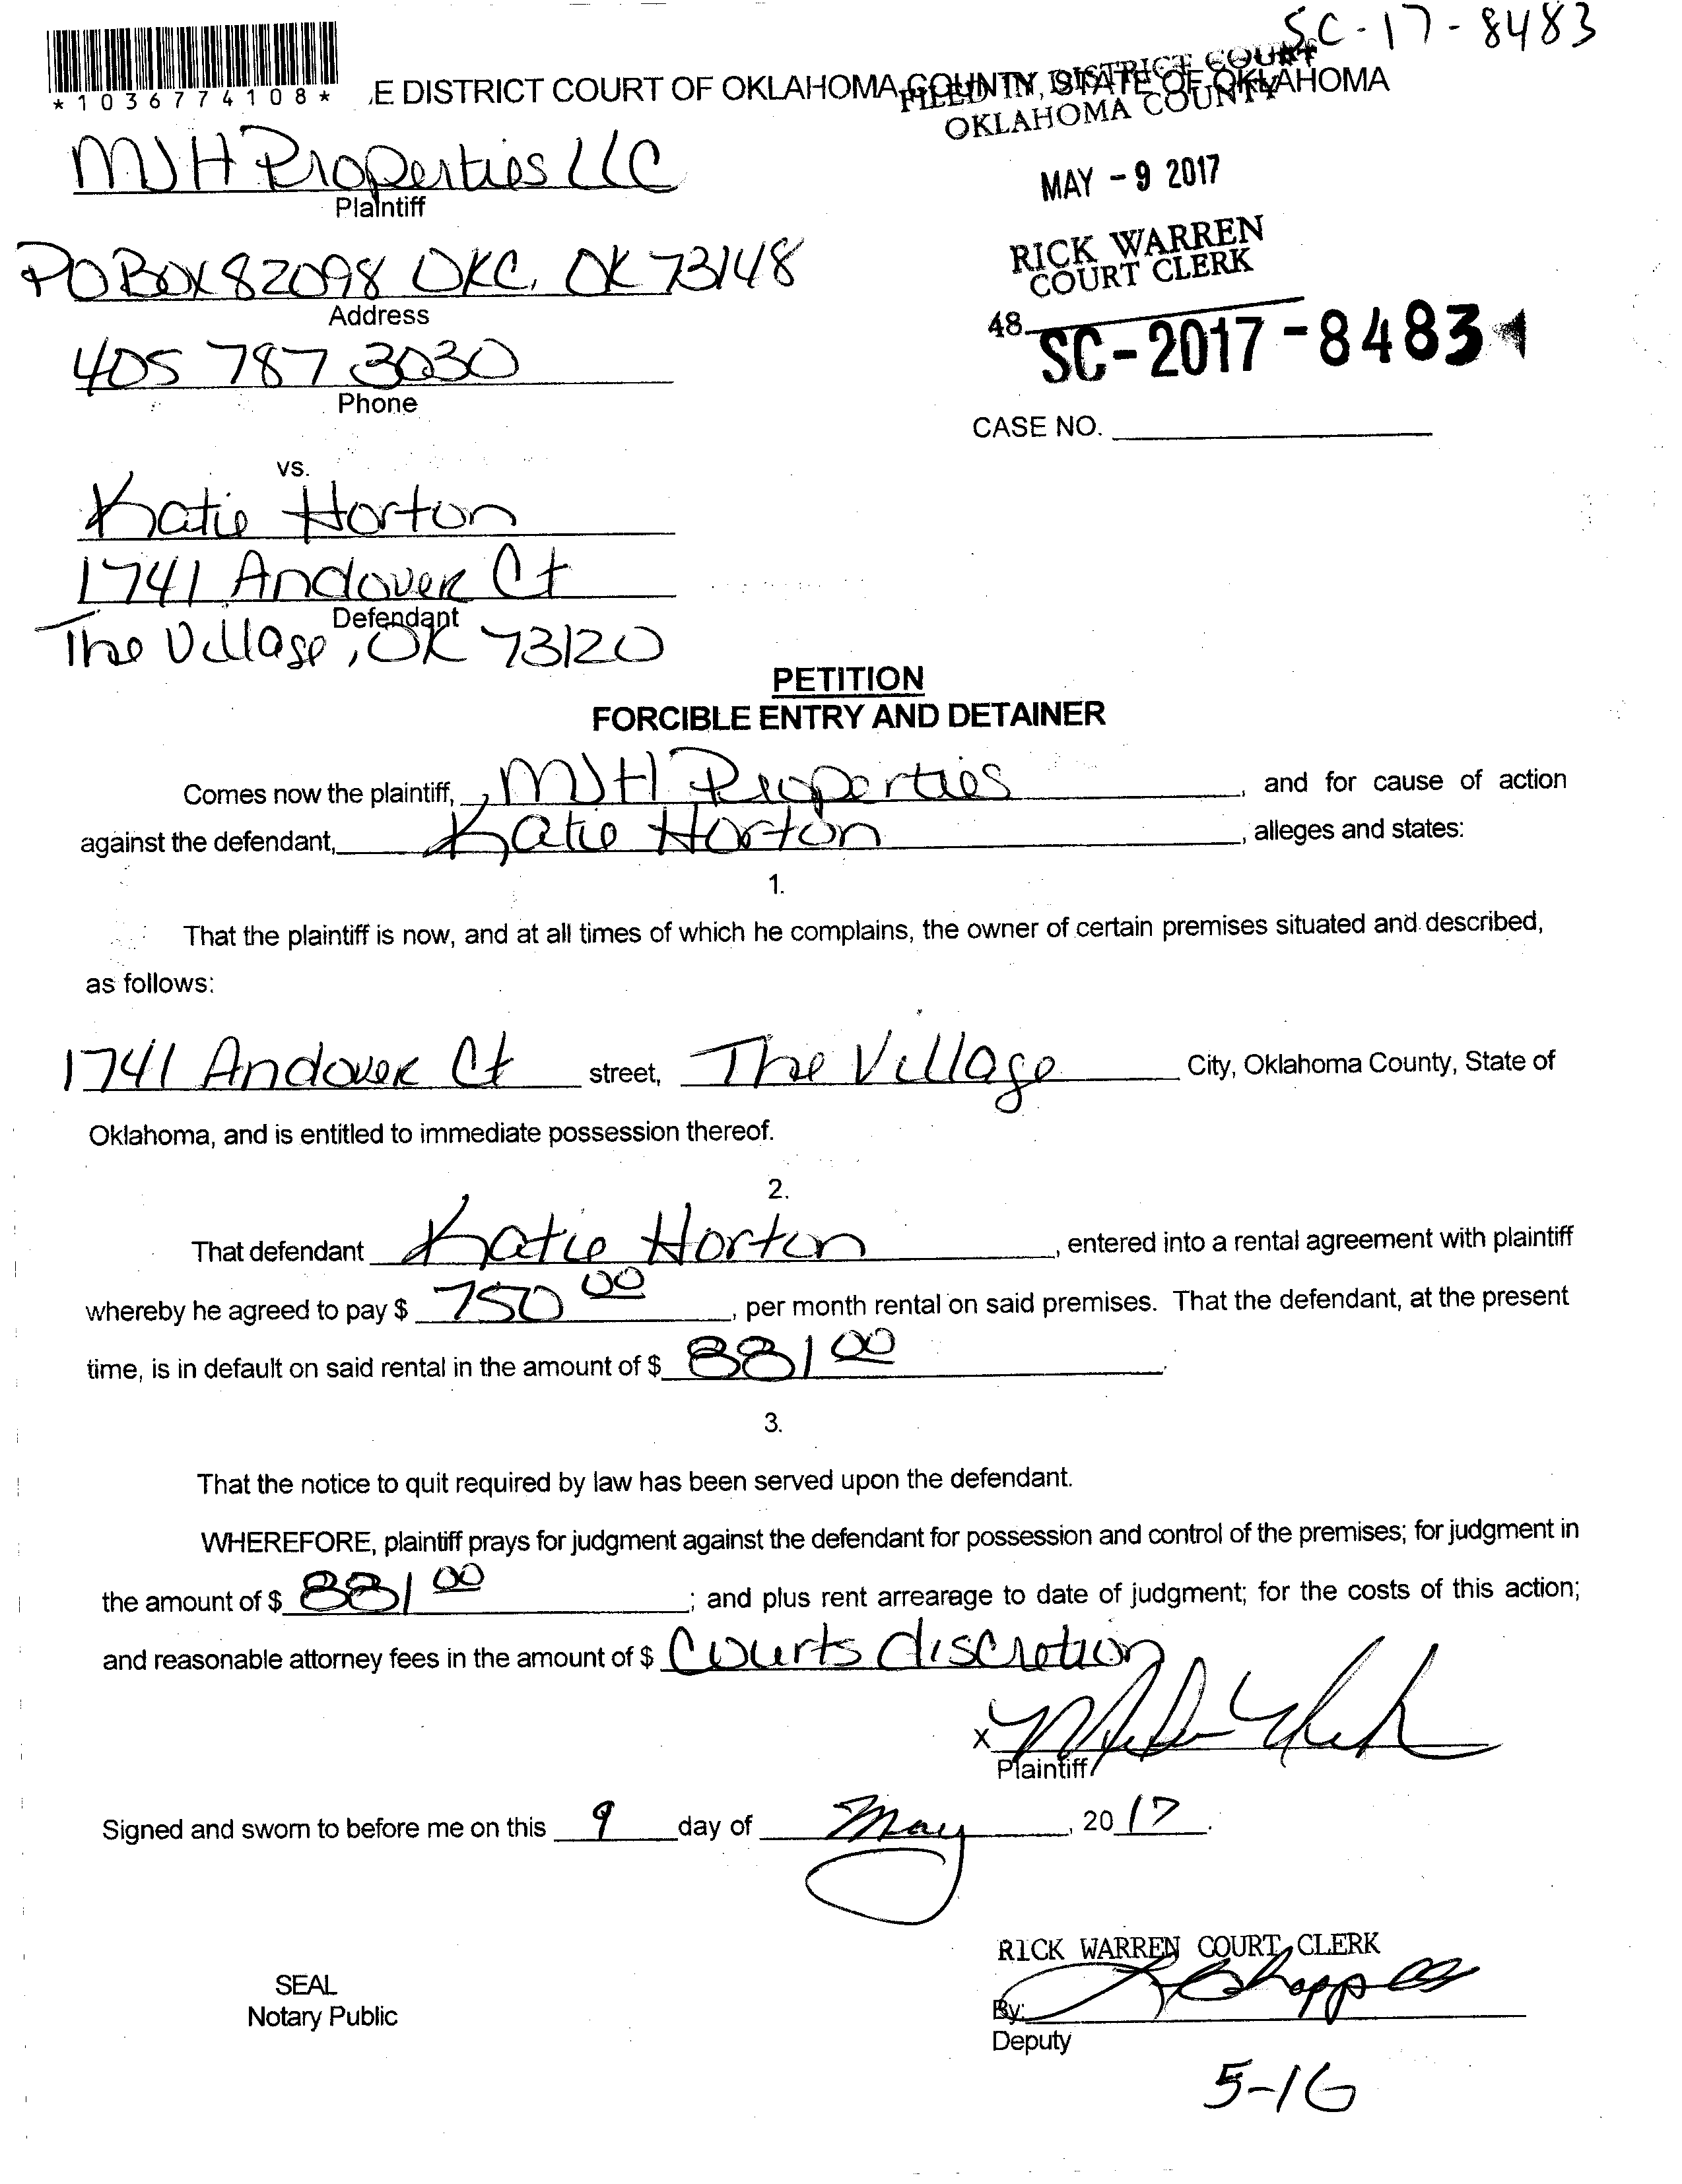 SC-17-8483
*1036774108*
E DISTRICT COURT OF OKLAHOMA COUNTY, STATE OF OKLAHOMA
FILED IN DISTRICT COURT
OKLAHOMA COUNTY
MJH Properties LLC
Plaintiff
MAY - 9 2017
PO BOX 82098 OKC, OK 73148
Address
RICK WARREN
COURT CLERK
405 787 3030
Phone
48
SC-2017-8483
CASE NO.
vs.
Katie Horton
1741 Andover Ct
Defendant
The Village, OK 73120
PETITION
FORCIBLE ENTRY AND DETAINER
Comes now the plaintiff, MJH Properties, and for cause of action
against the defendant, Katie Horton, alleges and states:
1.
That the plaintiff is now, and at all times of which he complains, the owner of certain premises situated and described,
as follows:
1741 Andover Ct street, The Village City, Oklahoma County, State of
Oklahoma, and is entitled to immediate possession thereof.
2.
That defendant Katie Horton, entered into a rental agreement with plaintiff
whereby he agreed to pay $ 750 00, per month rental on said premises. That the defendant, at the present
time, is in default on said rental in the amount of $ 881 00.
3.
That the notice to quit required by law has been served upon the defendant.
WHEREFORE, plaintiff prays for judgment against the defendant for possession and control of the premises; for judgment in
the amount of $ 881 00; and plus rent arrearage to date of judgment; for the costs of this action;
and reasonable attorney fees in the amount of $ Courts discretion
X
Plaintiff
Signed and sworn to before me on this 9 day of May, 20 17.
RICK WARREN COURT CLERK
SEAL
Notary Public
By:
Deputy
5-16